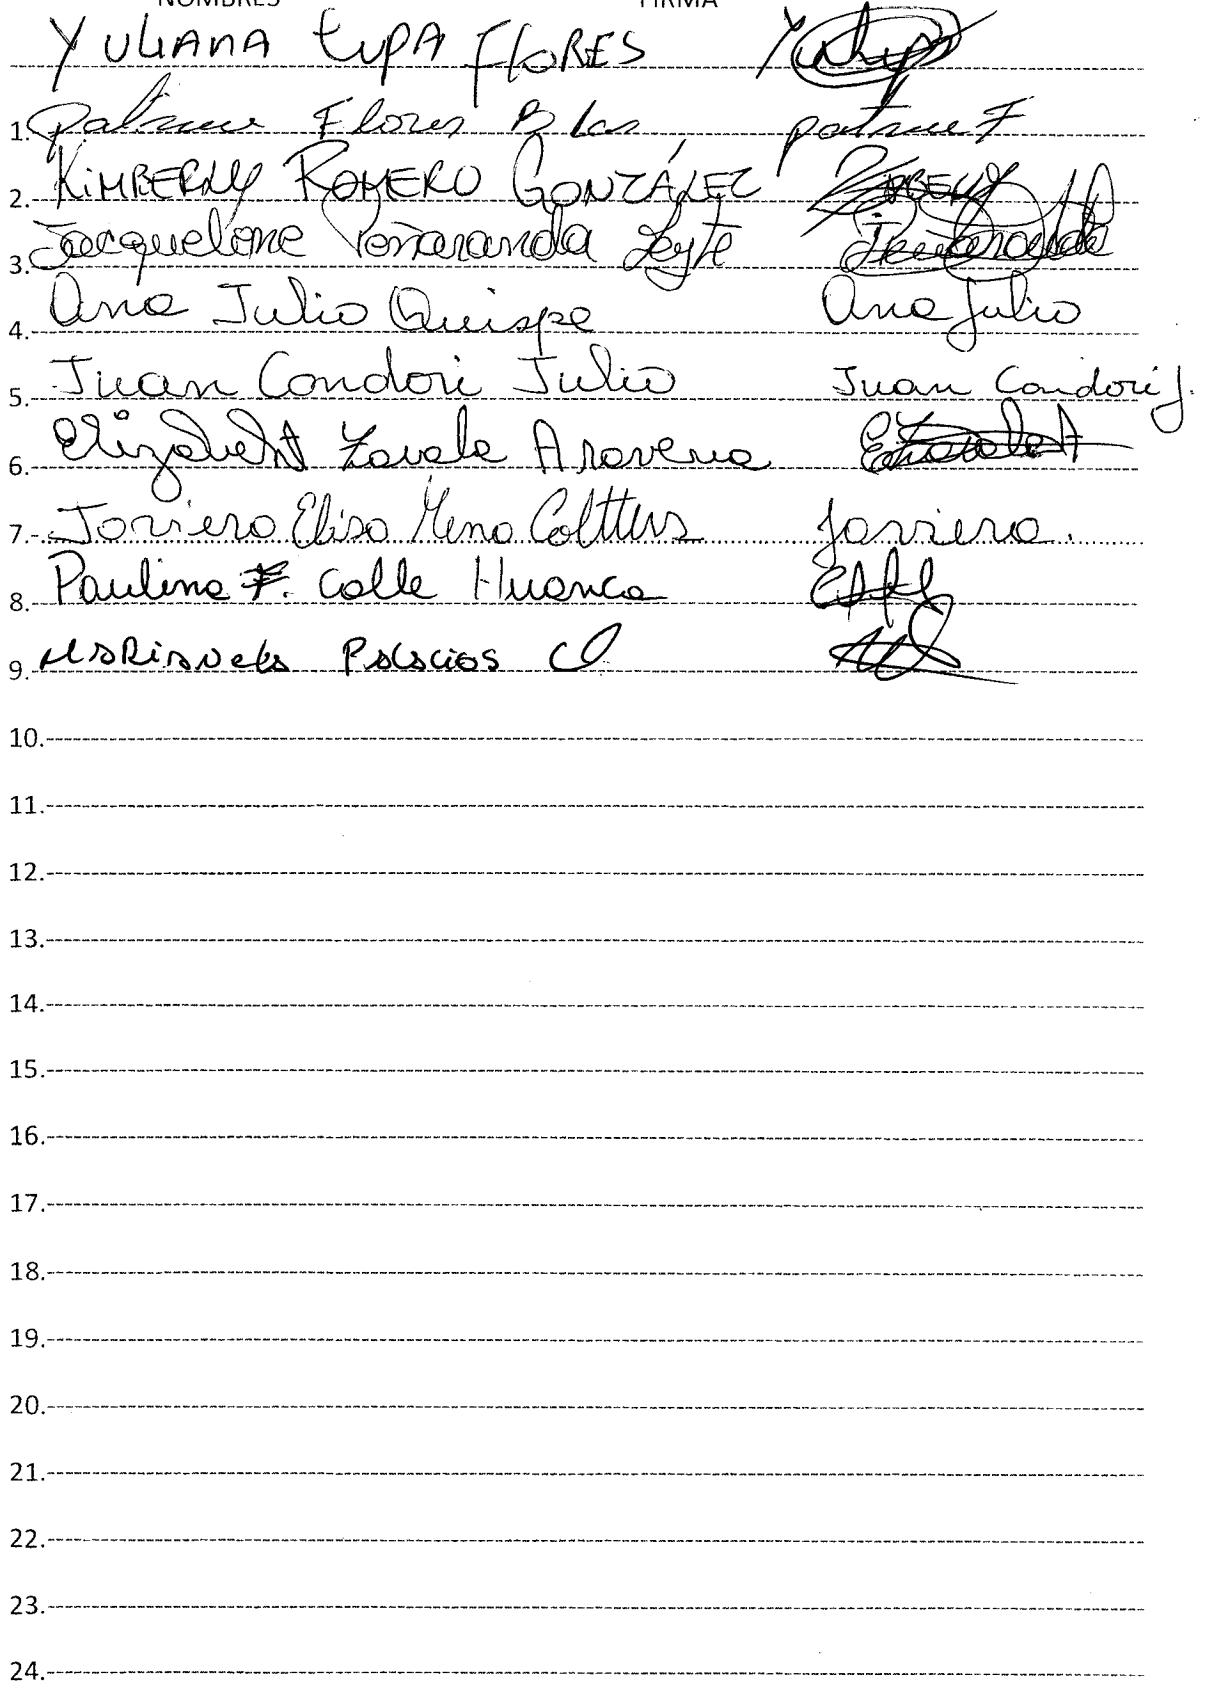 NOMBRES FIRMA
YULIANA tupA FloRES
1. Flores Blas
2. KiMBERLY ROMERO GONZÁLEZ
3. Jacqueline Peñaranda Leyte
4. Ana Julio Quispe Ana Julio
5. Juan Condori Julio Juan Condori J.
6. Elizabeht Zavala Aravena
7.- Javiera Elisa Mena Javiera.
8. Paulina F. Calle Huanca
9. Palacios
10.
11.
12.
13.
14.
15.
16.
17.
18.
19.
20.
21.
22.
23.
24.